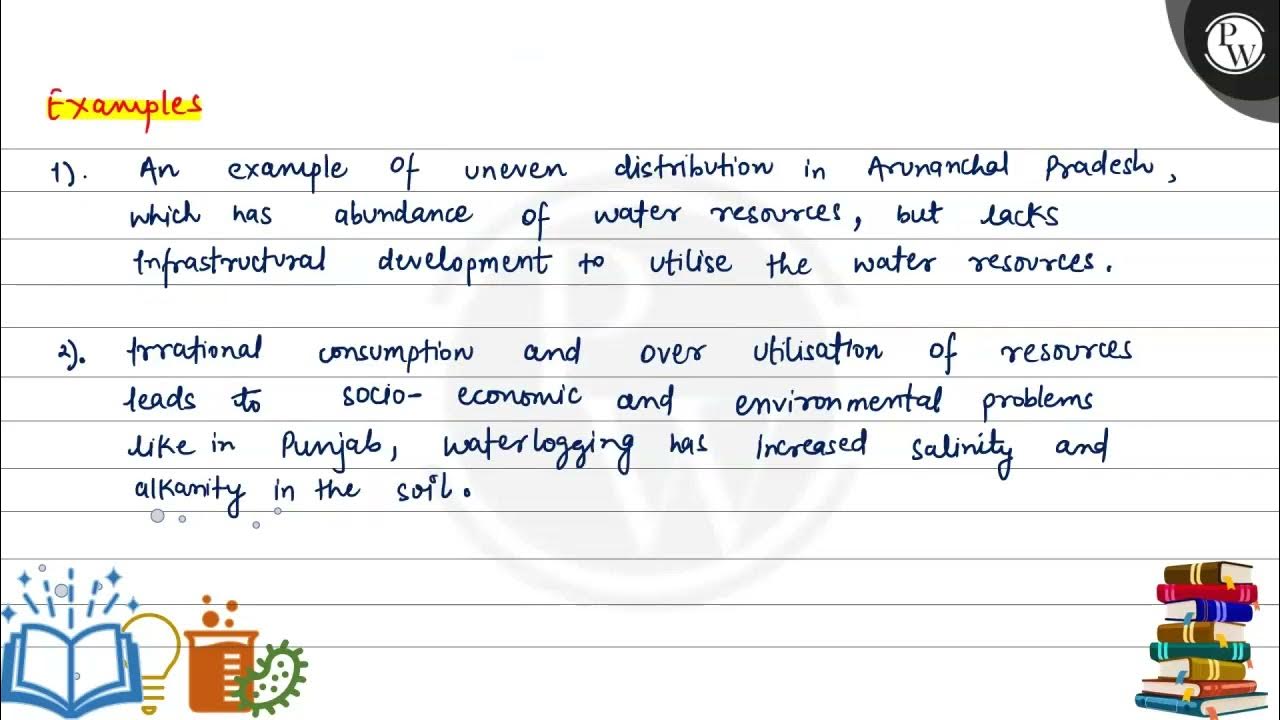 PW
Examples
1). An example of uneven distribution in Arunanchal Pradesh,
which has abundance of water resources, but lacks
Infrastructural development to utilise the water resources.
2). Irrational consumption and over utilisation of resources
leads to socio-economic and environmental problems
like in Punjab, waterlogging has increased salinity and
alkanity in the soil.
PW